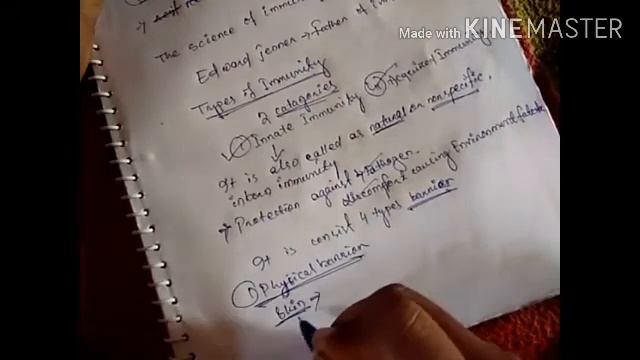 Made with KINEMASTER
The science of immun
Edward Jenner → Father of im
Types of Immunity
2 catagories
① Innate Immunity ② Acquired Immunity
It is also called as natural or nonspecific,
inborn immunity
→ Protection against Pathogen.
discomfort causing Environment
It is consist 4 types barrier
① Physical barrier
Skin →